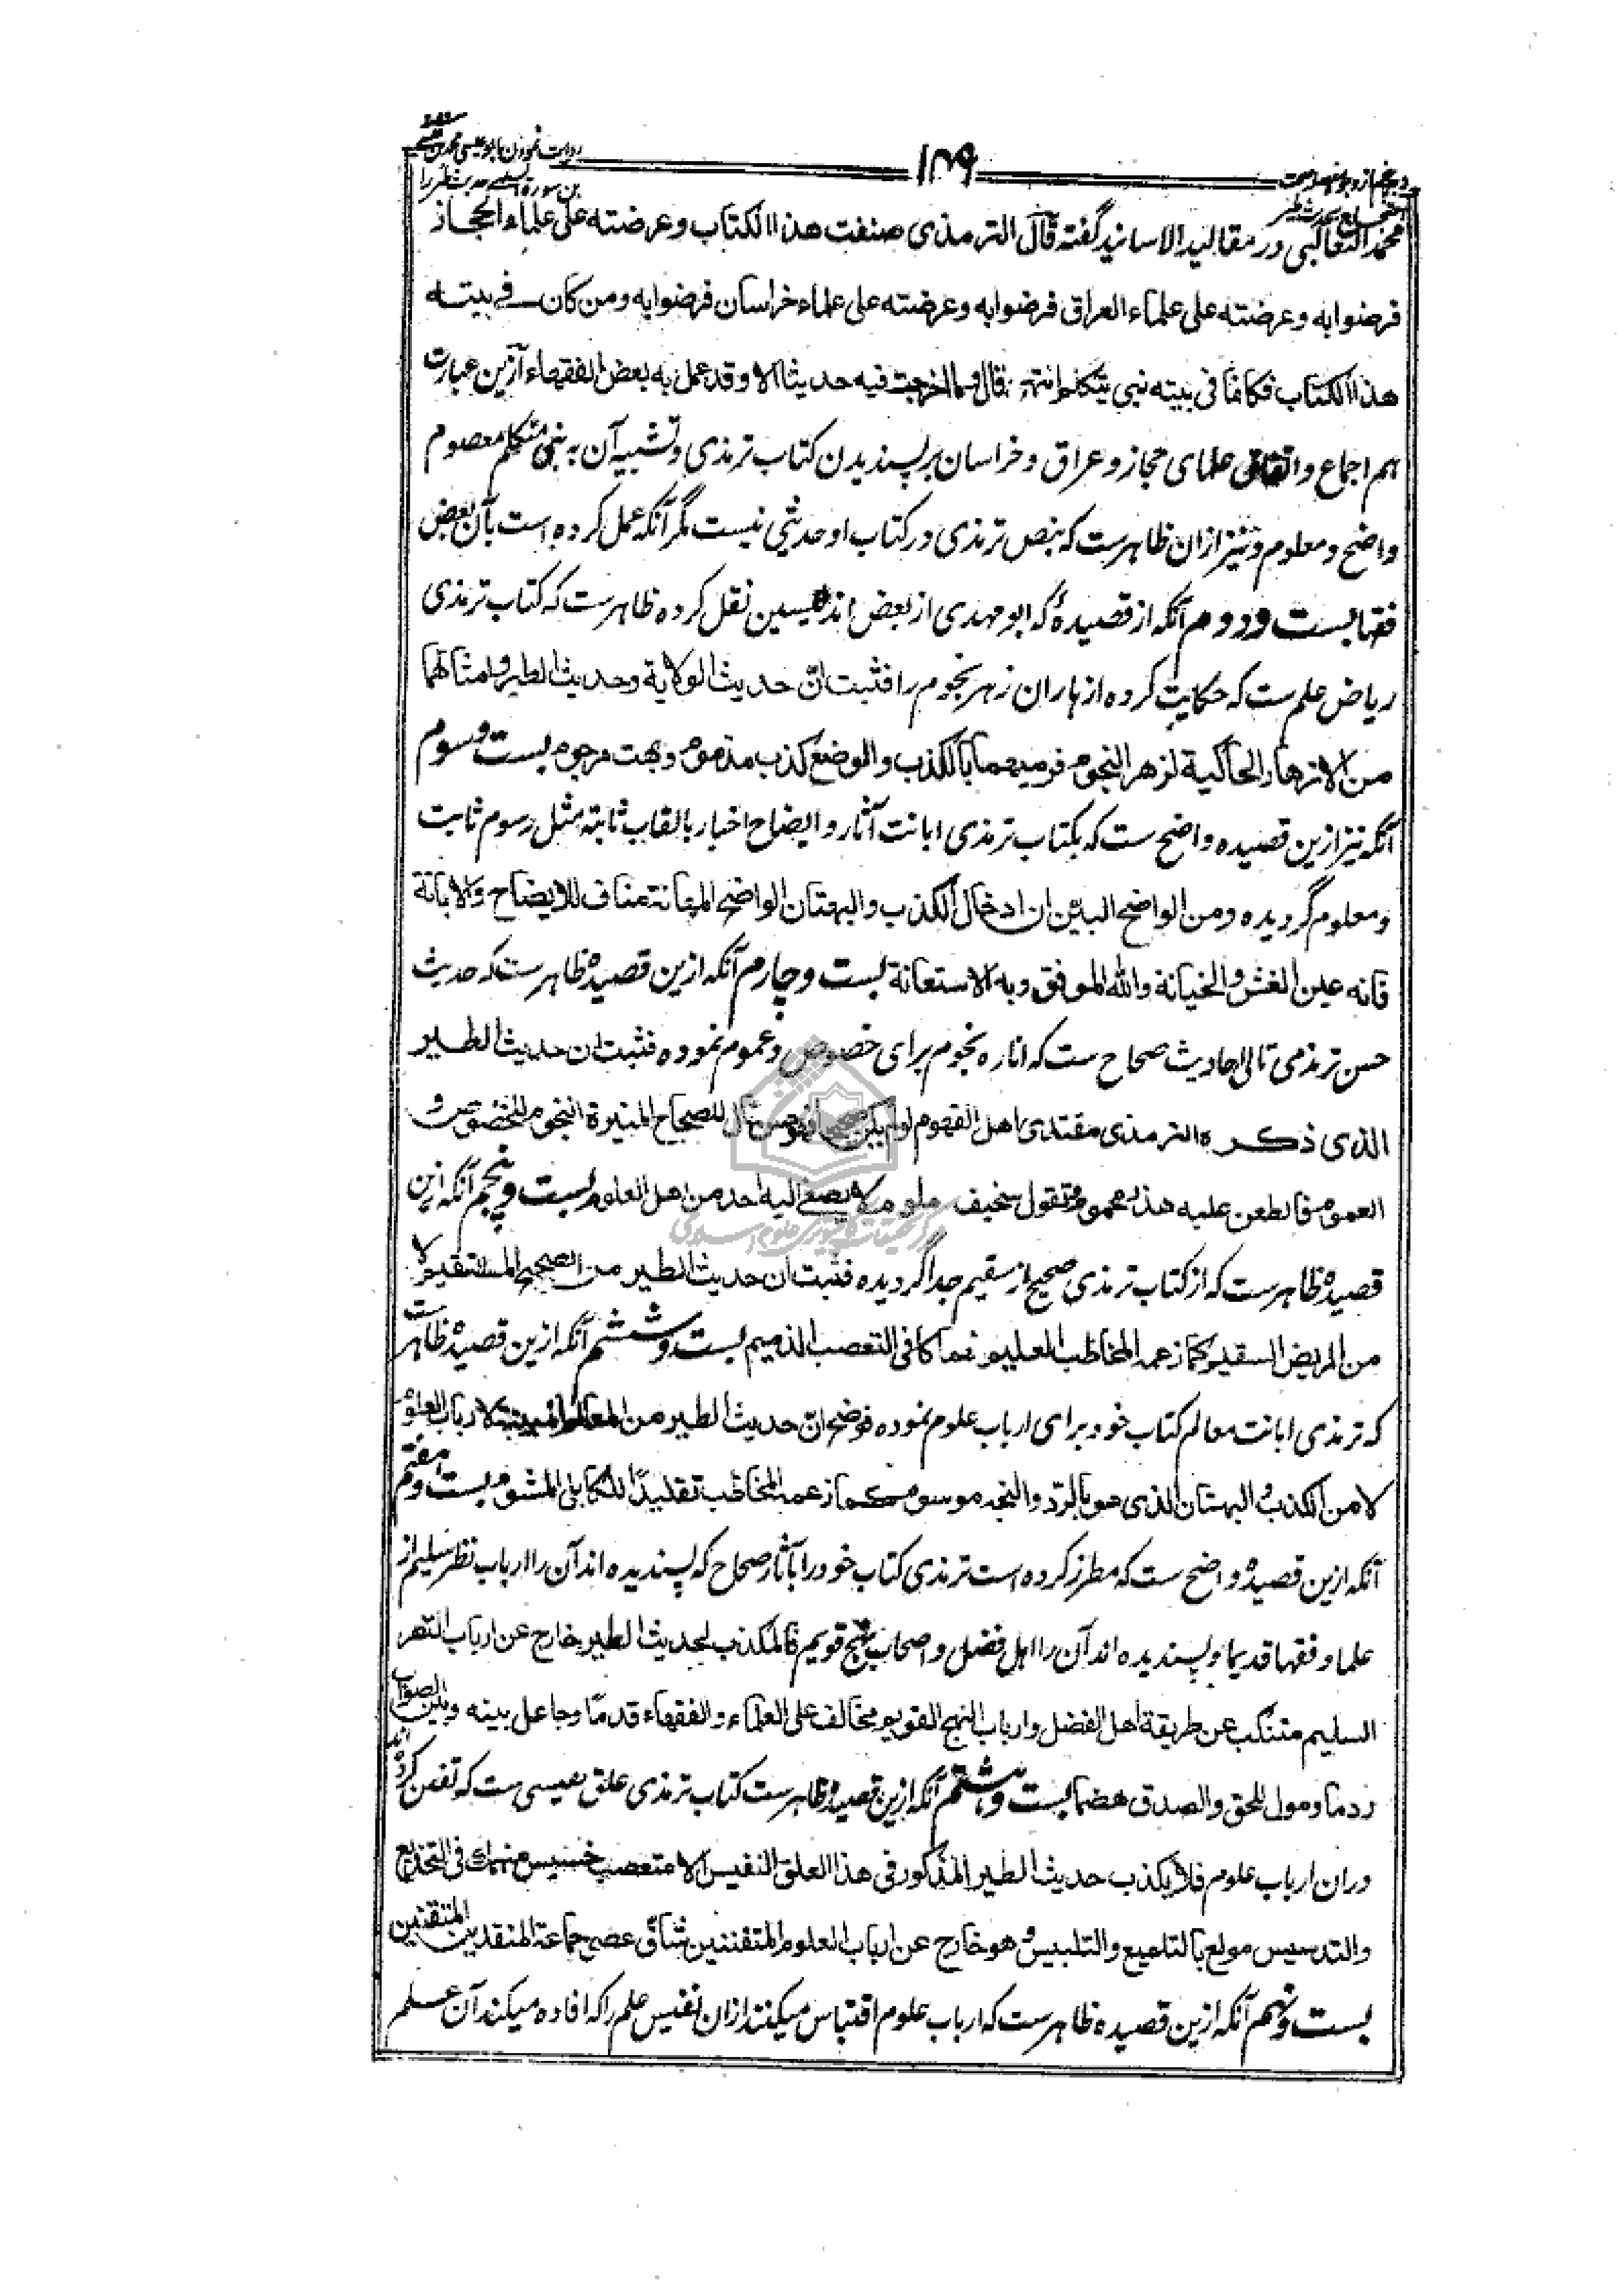 روایت نمودن ابو عیسی محمد بن
۱۴۹
محمد الثعالبی در مقالید الاسانید گفته قال الترمذی صنفت هذا الکتاب وعرضته علی علماء الحجاز
فرضوا به وعرضته علی علماء العراق فرضوا به وعرضته علی علماء خراسان فرضوا به ومن کان فی بیته
هذا الکتاب فکانما فی بیته نبی یتکلم انتهی قال وما اخرجت فیه حدیثا الا وقد عمل به بعض الفقهاء ازین عبارت
هم اجماع و اتفاق علمای حجاز و عراق و خراسان بر پسندیدن کتاب ترمذی و تشبیه آن به نبی متکلم معصوم
واضح و معلوم و نیز ازان ظاهرست که بنص ترمذی در کتاب او حدیثی نیست مگر آنکه عمل کرده است بآن بعض
فقها بست و دوم آنکه از قصیدۀ که ابو مهدی از بعض اندلسیین نقل کرده ظاهرست که کتاب ترمذی
ریاض علم ست که حکایت کرده ازهار ان زهر نجوم را فثبت ان حدیث الولایة وحدیث الطیر وامثالهما
من الازهار الحاکیة لزهر النجوم فرمیهما بالکذب والوضع کذب مذموم وبهت مرجوم بست و سوم
آنکه نیز ازین قصیده واضح ست که بکتاب ترمذی ابانت آثار و ایضاح اخبار بالقاب ثابته مثل رسوم ثابت
و معلوم گردیده ومن الواضح البین ان ادخال الکذب والبهتان الواضح المهانة مناف للایضاح والابانة
فانه عین الغش والخیانة والله الموفق وبه الاستعانة بست و چارم آنکه ازین قصیده ظاهرست که حدیث
حسن ترمذی تالی احادیث صحاح ست که اناره نجوم برای خصوص و عموم نموده فثبت ان حدیث الطیر
الذی ذکره الترمذی مقتدی اهل الفهوم لو لم یکن صحیحا فهو حسن تال للصحاح المنیرة النجوم للخصوص و
العموم فالطعن علیه هذر محموم وتقول سخیف ملوم لا یصغی الیه احد من اهل العلوم بست و پنجم آنکه ازین
قصیده ظاهرست که از کتاب ترمذی صحیح از سقیم جدا گردیده فثبت ان حدیث الطیر من الصحیح المستقیم لا
من المریض السقیم کما زعم المخاطب العلیم المتعصب الذمیم بست و ششم آنکه ازین قصیده ظاهرست
که ترمذی ابانت معالم کتاب خود برای ارباب علوم نموده فوضح ان حدیث الطیر من المعالم المبینة لارباب العلوم
لا من الکذب والبهتان الذی هو بالرد والنجه موسوم کما زعمه المخاطب تقلیدا للکابلی المشؤم بست و هفتم
آنکه ازین قصیده واضح ست که مطرز کرده است ترمذی کتاب خود را بآثار صحاح که پسندیده اند آن را ارباب نظر سلیم از
علما و فقها قدیما و پسندیده اند آن را اهل فضل و اصحاب نهج قویم فالمکذب لحدیث الطیر خارج عن ارباب النظر
السلیم متنکب عن طریقة اهل الفضل وارباب النهج القویم مخالف علی العلماء والفقهاء قدما وجاعل بینه وبین الصواب
ردما ومول للحق والصدق هضما بست و هشتم آنکه ازین قصیده ظاهرست کتاب ترمذی علق نفیسی ست که تنفس کرده اند
دران ارباب علوم فلا یکذب حدیث الطیر المذکور فی هذا العلق النفیس الا متعصب خسیس منهمک فی التخدیع
والتدسیس مولع بالتلمیع والتلبیس وهو خارج عن ارباب العلوم المتفننین شاق عصی جماعة المنقدین المتقنین
بست و نهم آنکه ازین قصیده ظاهرست که ارباب علوم اقتباس میکنند ازان نفیس علم را که افاده میکند آن علم
مرکز تحقیقات کامپیوتری علوم اسلامی